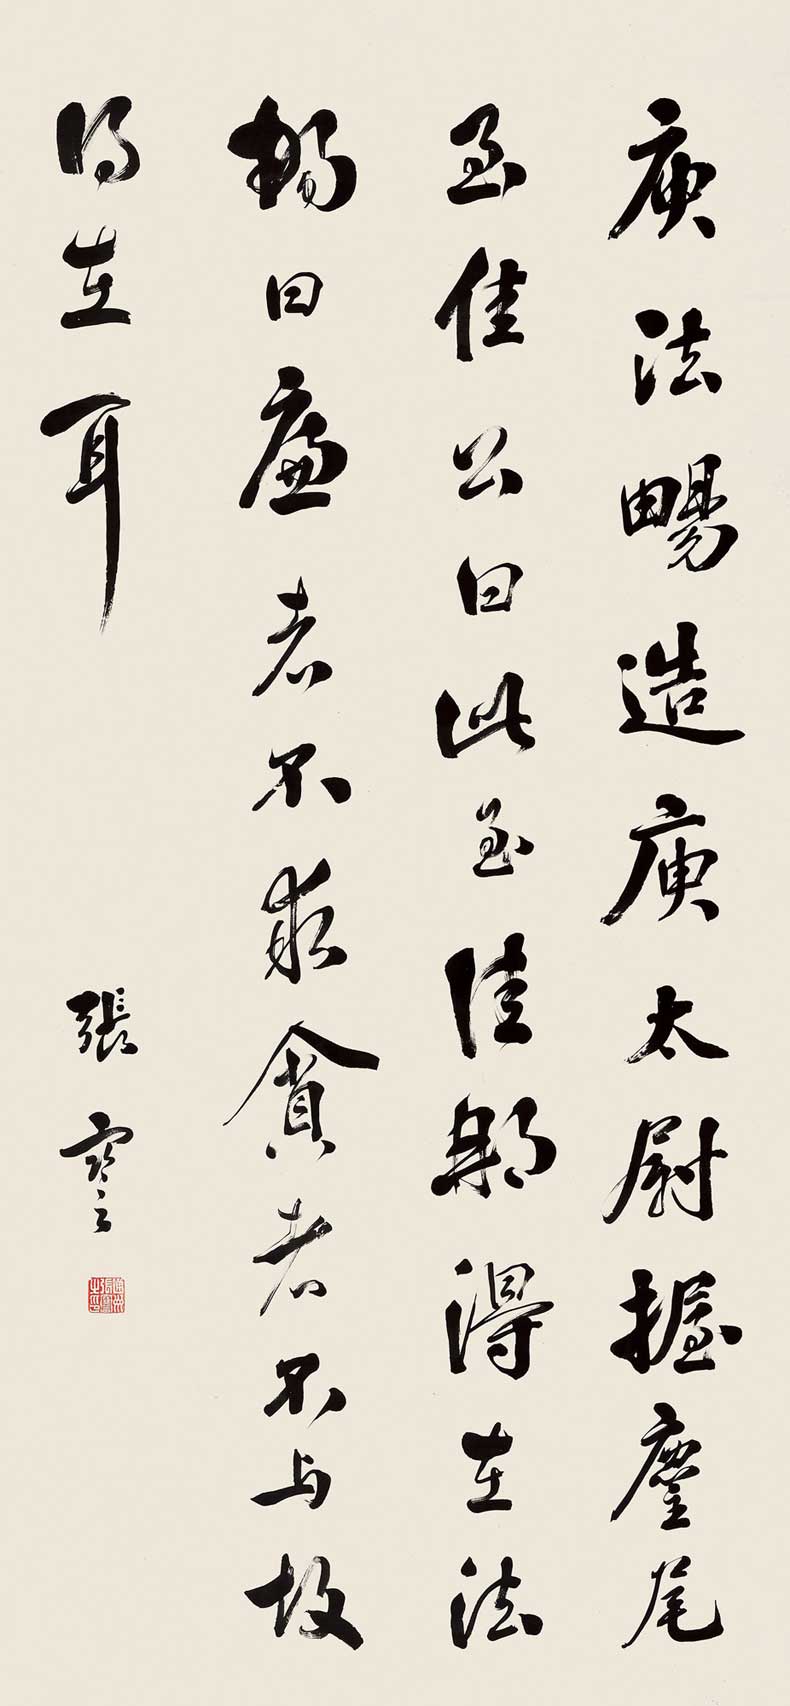 庾法暢造庾太尉握麈尾
至佳公曰此至佳那得在法
暢曰廉者不求貪者不与故
得在耳
張謇